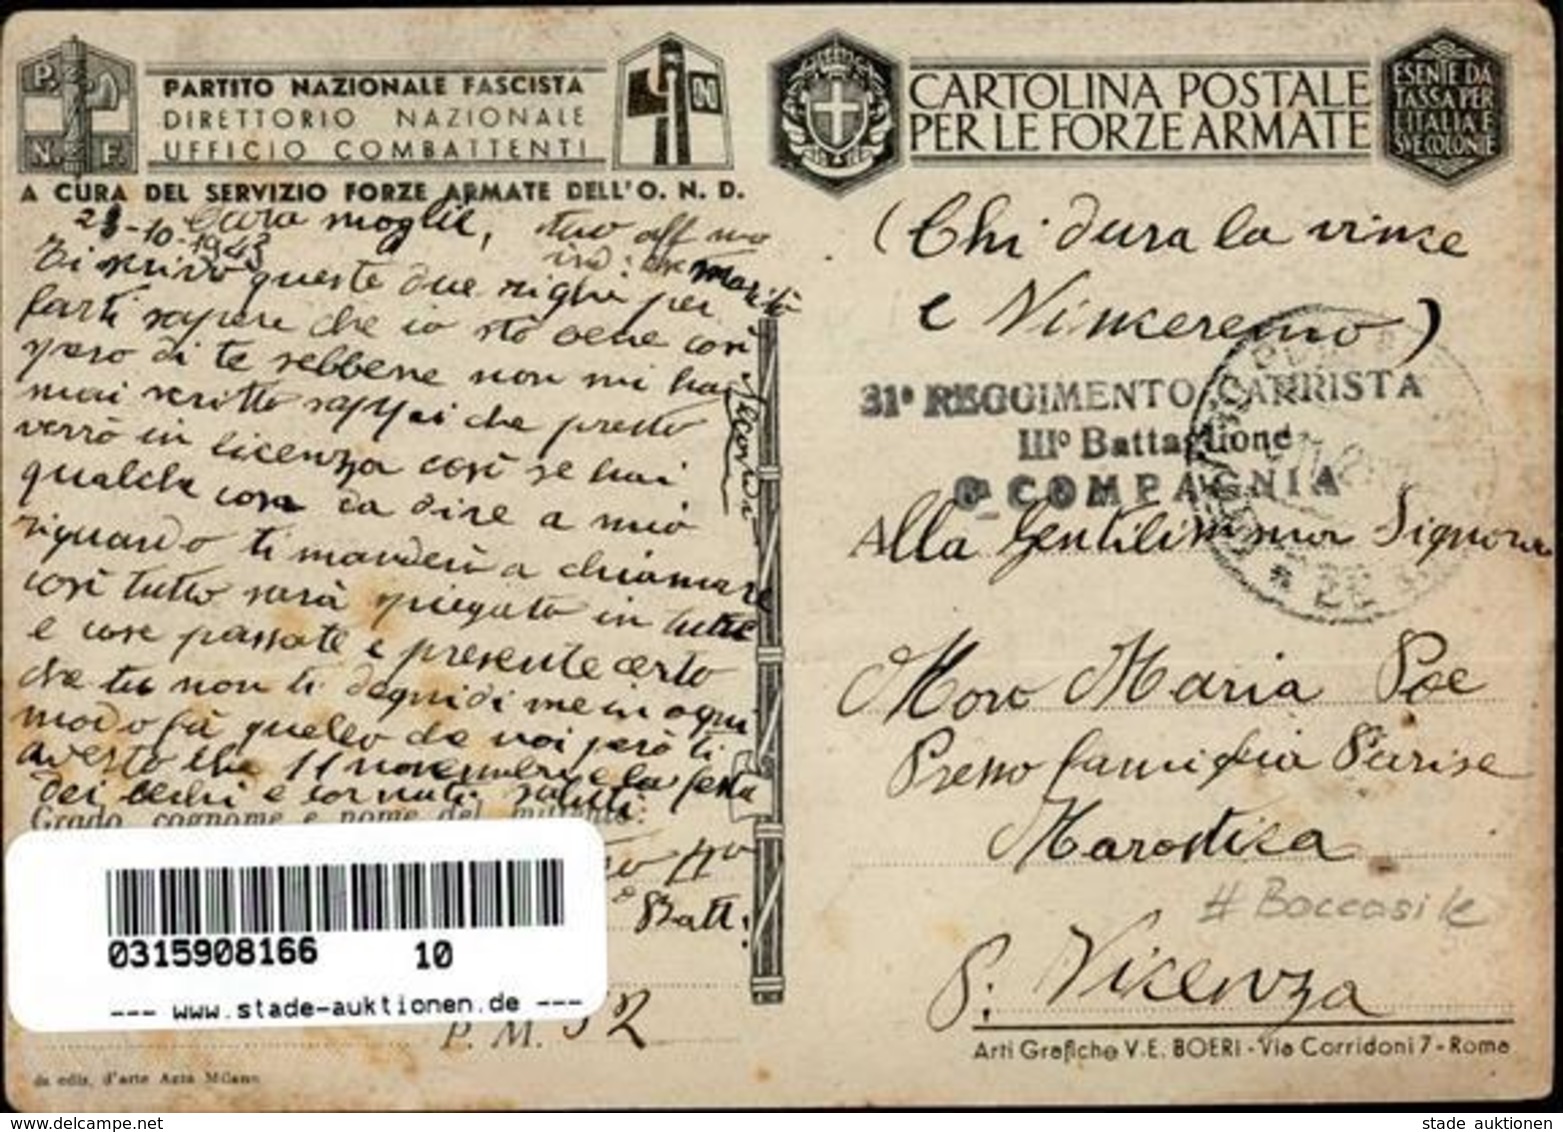 P. N.
N. F.
PARTITO NAZIONALE FASCISTA
DIRETTORIO NAZIONALE
UFFICIO COMBATTENTI
A CURA DEL SERVIZIO FORZE ARMATE DELL'O. N. D.
CARTOLINA POSTALE
PER LE FORZE ARMATE
ESENTE DA
TASSA PER
L'ITALIA E
SUE COLONIE
28-10-1943
Cara moglie,
Ti scrivo queste due righe per
farti sapere che io sto bene così
spero di te sebbene non mi hai
mai scritto sappi che presto
verrò in licenza così se hai
qualche cosa da dire a mio
riguardo ti manderò a chiamare
così tutto sarà spiegato in tutte
e cose passate e presente certo
che tu non ti degnidi me in ogni
modo fà quello da voi però ti
averto che 11 novembre e la festa
dei becchi e cornuti saluti
tuo aff mo
marito
Grado, cognome e nome del mittente:
Batt:
P. M. 52
da ediz. d'arte Asta Milano
(Chi dura la vince
e Vinceremo)
31° REGGIMENTO CARRISTA
III° Battaglione
COMPAGNIA
Alla Gentilissima Signora
Moro Maria
Presso famiglia Parise
Marostica
# Boccasile
P. Vicenza
Arti Grafiche V. E. BOERI - Via Corridoni 7 - Roma
0315908166 10
--- www.stade-auktionen.de ---
stade auktionen